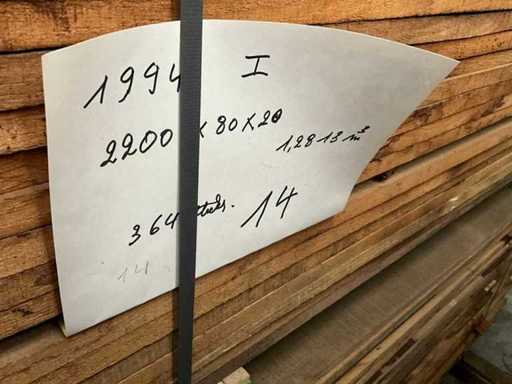 1994 I
2200 x 80 x 20
1,2813 m³
364
14
14